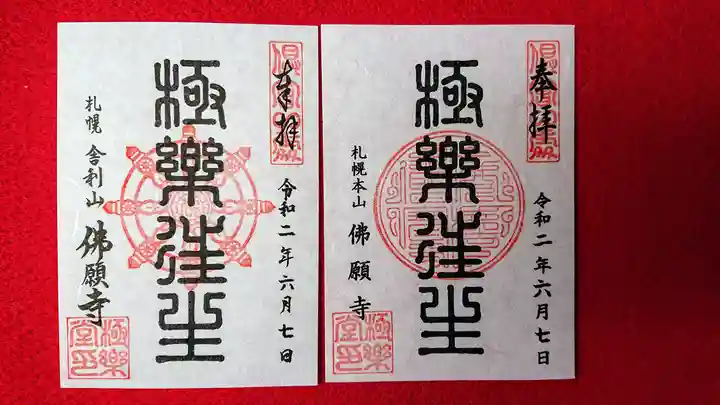 奉拝
令和二年六月七日
極樂往生
札幌 舎利山 佛願寺
極樂堂印
奉拝
令和二年六月七日
極樂往生
札幌本山 佛願寺
極樂堂印